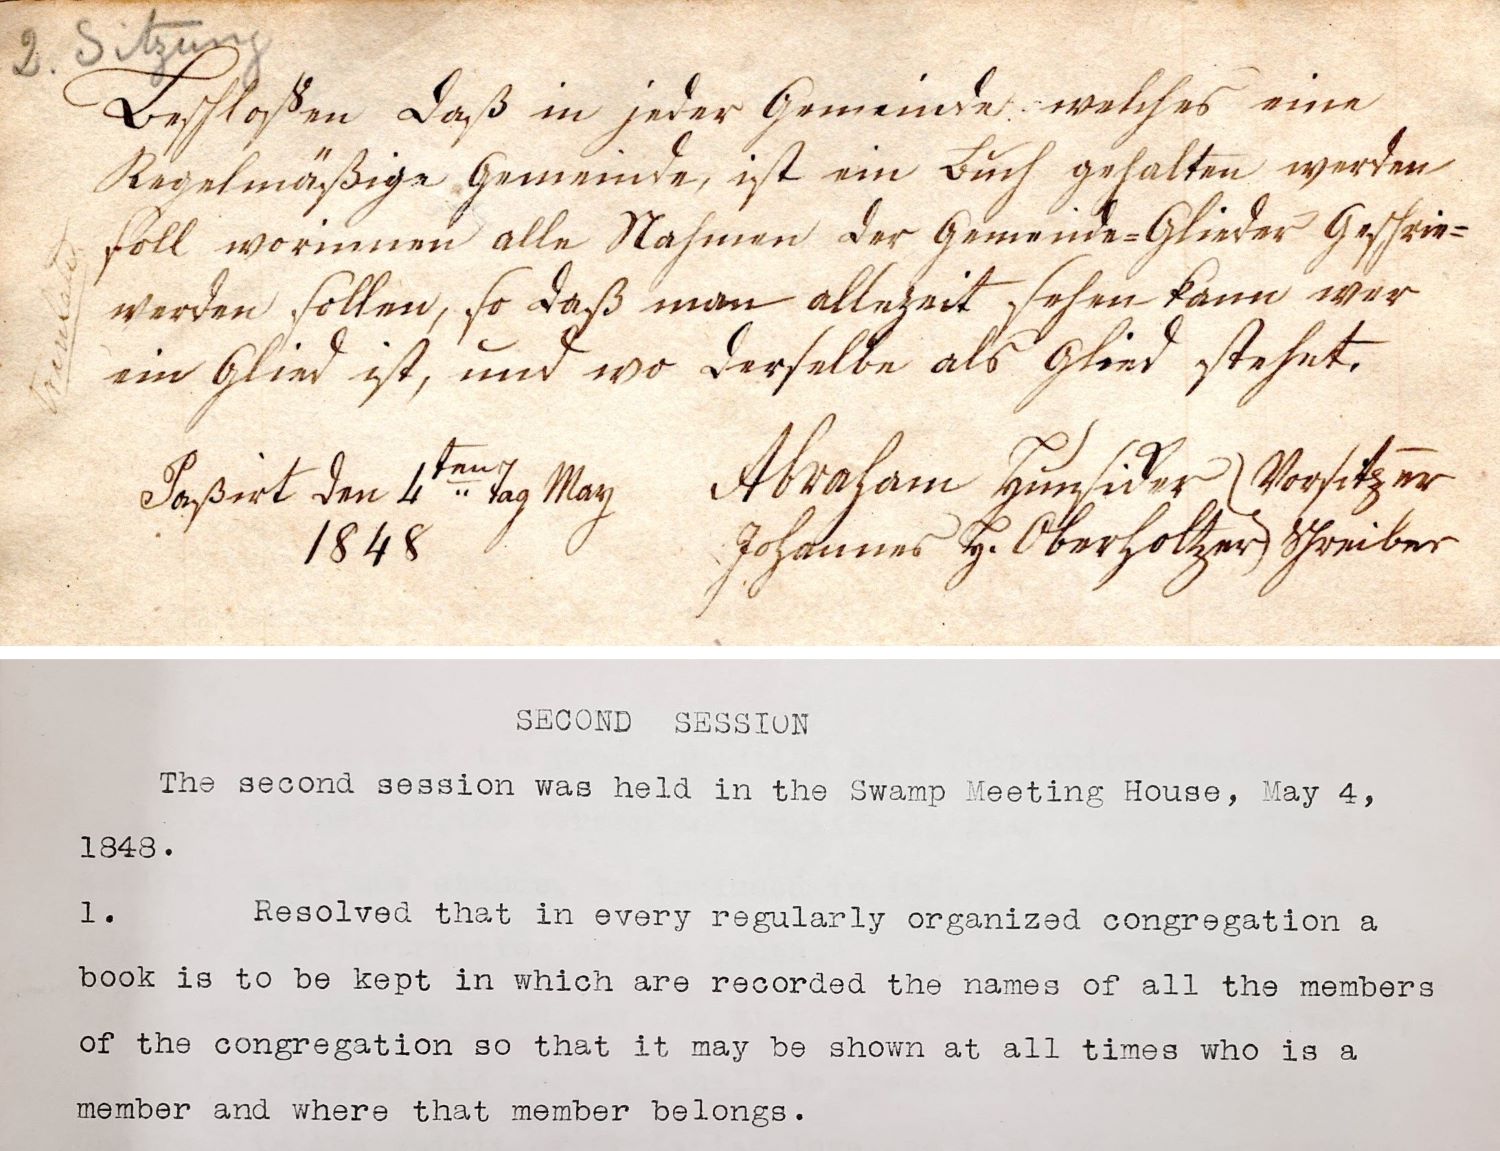 2. Sitzung
Beschloßen daß in jeder Gemeinde welches eine
Regelmäßige Gemeinde, ist ein Buch gehalten werden
soll worinnen alle Nahmen der Gemeinde=Glieder Geschrie=
werden sollen, so daß man allezeit sehen kann wer
ein Glied ist, und wo derselbe als Glied stehet.
Paßirt den 4ten Tag May
1848
Abraham Hunsicker Vorsitzer
Johannes H. Oberholtzer Schreiber
SECOND SESSION
The second session was held in the Swamp Meeting House, May 4,
1848.
1. Resolved that in every regularly organized congregation a
book is to be kept in which are recorded the names of all the members
of the congregation so that it may be shown at all times who is a
member and where that member belongs.